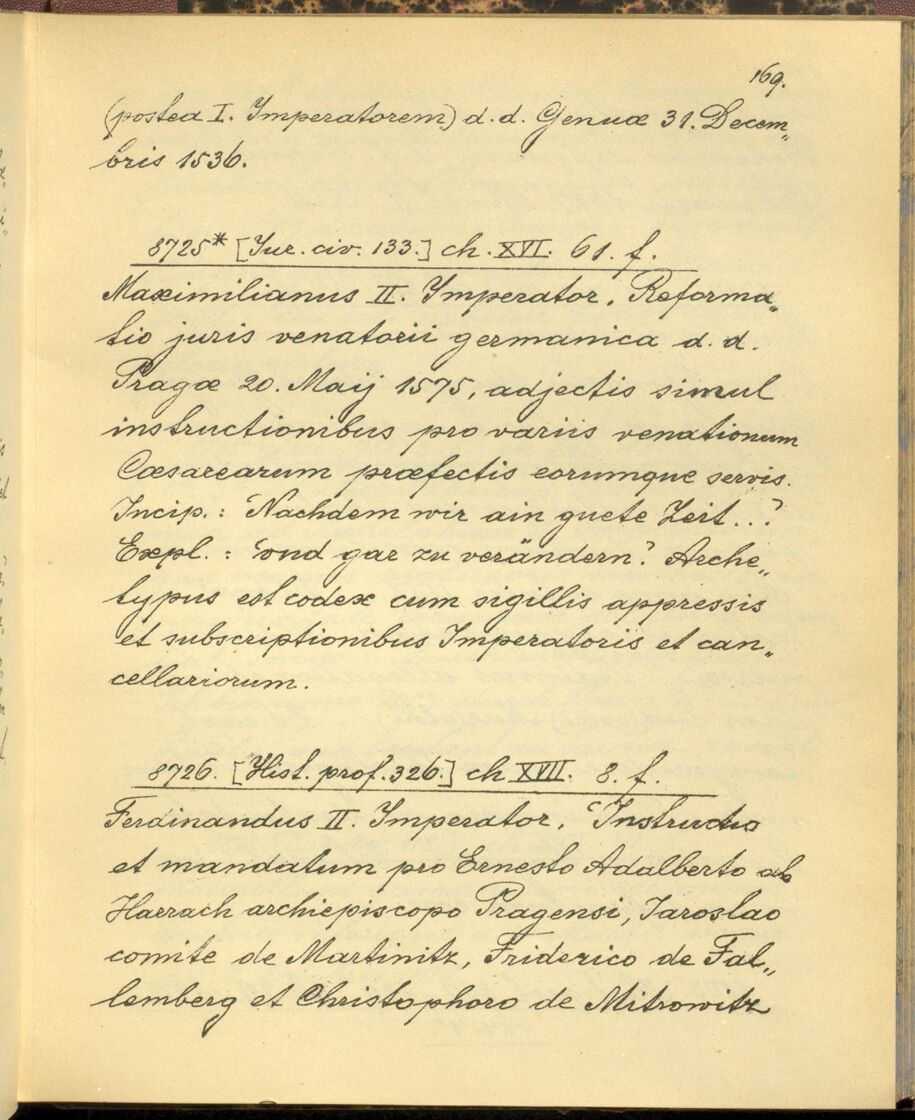 169.
(postea I. Imperatorem) d. d. Genuæ 31. Decem„
bris 1536.
8725* [Jur. civ. 133.] ch. XVI. 61. f.
Maximilianus II. Imperator. Reforma„
tio juris venatorii germanica d. d.
Pragæ 20. Maij 1575, adjectis simul
instructionibus pro variis venationum
Cæsarearum præfectis eorumque servis.
Incip.: 'Nachdem wir ain guete Zeit...'
Expl.: 'vnd gar zu verändern'. Arche„
typus est codex cum sigillis appressis
et subscriptionibus Imperatoris et can„
cellariorum.
8726. [Hist. prof. 326.] ch XVII. 8. f.
Ferdinandus II. Imperator. 'Instructio
et mandatum pro Ernesto Adalberto ab
Harrach archiepiscopo Pragensi, Jaroslao
comite de Martinitz, Friderico de Fal„
lemberg et Christophoro de Mitrowitz